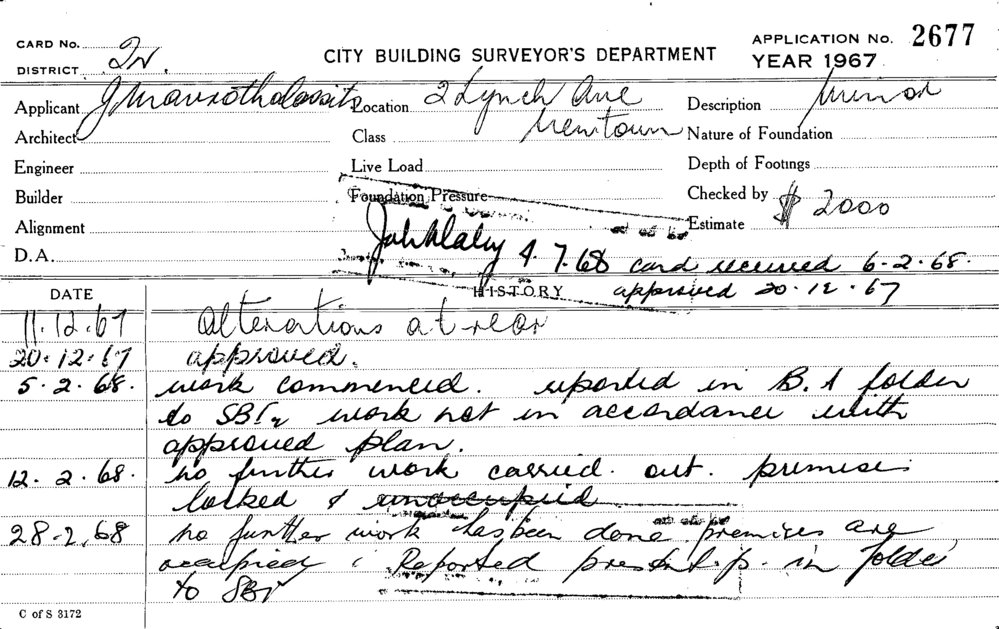 CARD No.
DISTRICT
CITY BUILDING SURVEYOR'S DEPARTMENT
APPLICATION No. 2677
YEAR 1967
Applicant
Location 2 Lynch Ave
Newtown
Description Minor
Architect
Class
Nature of Foundation
Engineer
Live Load
Depth of Footings
Builder
Foundation Pressure
Checked by
Estimate $ 2000
Alignment
D.A.
4.7.68 card received 6-2-68.
DATE
HISTORY approved 20.12.67
11.12.67 Alterations at rear
20.12.67 approved.
5.2.68. work commenced. reported in B.I folder
to SBI work not in accordance with
approved plan.
12.2.68. no further work carried out. premises
locked & unoccupied
28-2.68 no further work has been done premises are
occupied Reported present in folder
to SBI
C of S 3172